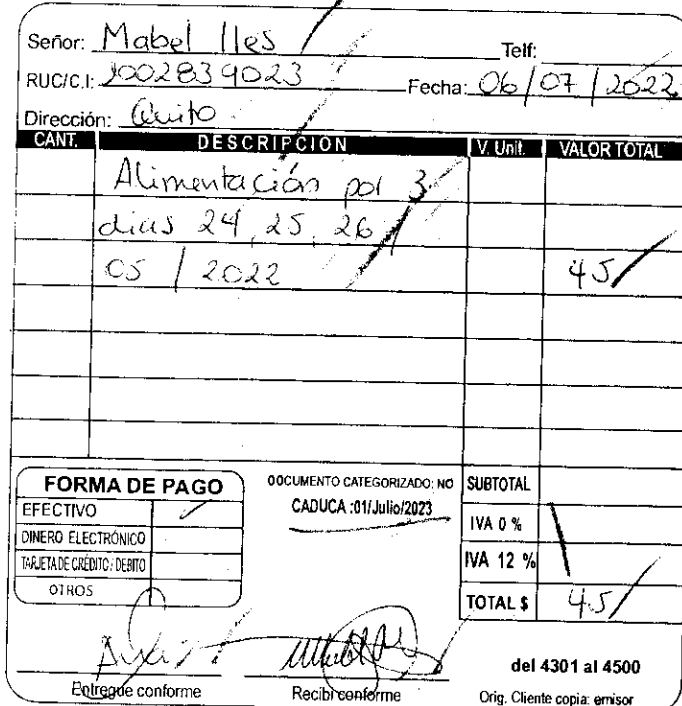 Señor: Mabel Iles Telf:
RUC/C.I: 1002839023 Fecha: 06/07/2022
Dirección: Quito
CANT. DESCRIPCIÓN V. Unit. VALOR TOTAL
Alimentación por 3
dias 24, 25, 26
05 / 2022 45
FORMA DE PAGO
EFECTIVO
DINERO ELECTRÓNICO
TARJETA DE CRÉDITO / DEBITO
OTROS
DOCUMENTO CATEGORIZADO: NO
CADUCA :01/Julio/2023
SUBTOTAL
IVA 0 %
IVA 12 %
TOTAL $ 45
Entregue conforme
Recibi conforme
del 4301 al 4500
Orig. Cliente copia: emisor